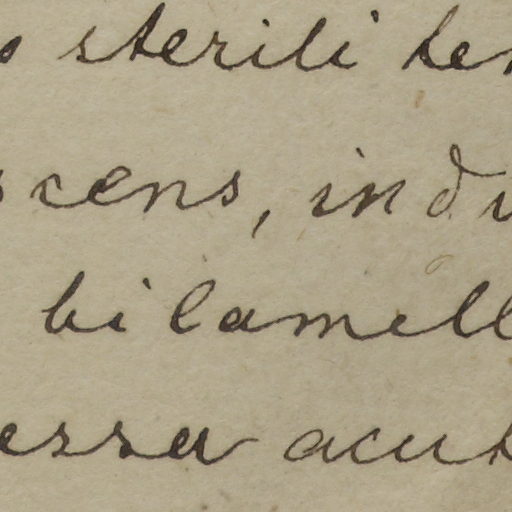 s sterili ter
scens, indu
bilamell
essa acut